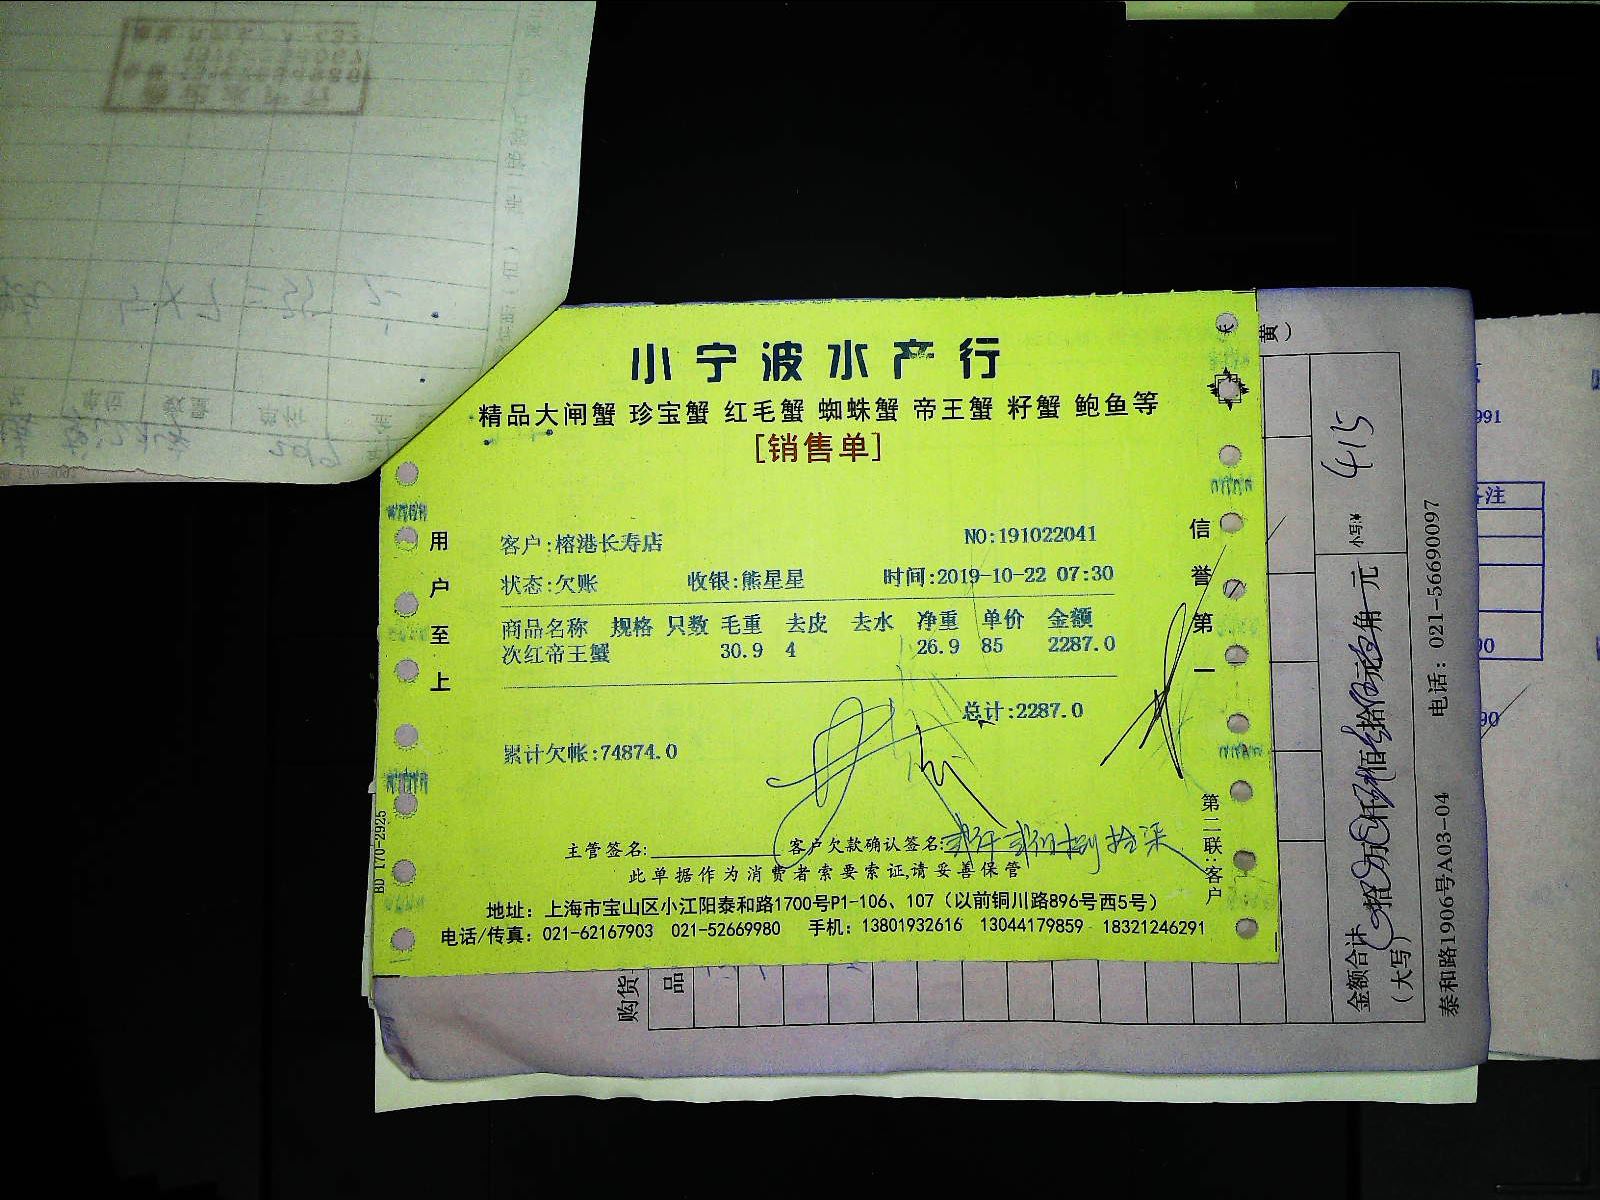 小宁波水产行
精品大闸蟹 珍宝蟹 红毛蟹 蜘蛛蟹 帝王蟹 籽蟹 鲍鱼等
[销售单]
客户:榕港长寿店 NO:191022041
状态:欠账 收银:熊星星 时间:2019-10-22 07:30
商品名称 规格 只数 毛重 去皮 去水 净重 单价 金额
次红帝王蟹 30.9 4 26.9 85 2287.0
总计:2287.0
累计欠帐:74874.0
主管签名: 客户欠款确认签名:贰仟贰佰捌拾柒
此单据作为消费者索要索证,请妥善保管
地址：上海市宝山区小江阳泰和路1700号P1-106、107（以前铜川路896号西5号）
电话/传真：021-62167903 021-52669980 手机：13801932616 13044179859 18321246291
用户至上
信誉第一
第二联:客户
BD 170-2925
黄）
购货
品
金额合计
（大写）
拾 万 仟 佰 拾 元 角 元
小写¥ 415
泰和路1906号A03-04 电话：021-56690097
991
注
90
90